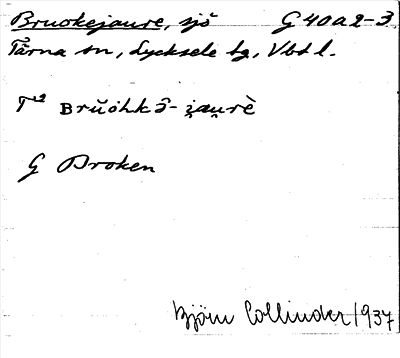 Bruokejaure, sjö G 40 a 2-3
Tärna sn, Lycksele lg, Vbtl.
T² Brŭòhkê-i̯au̯rè
G Broken
Björn Collinder 1937